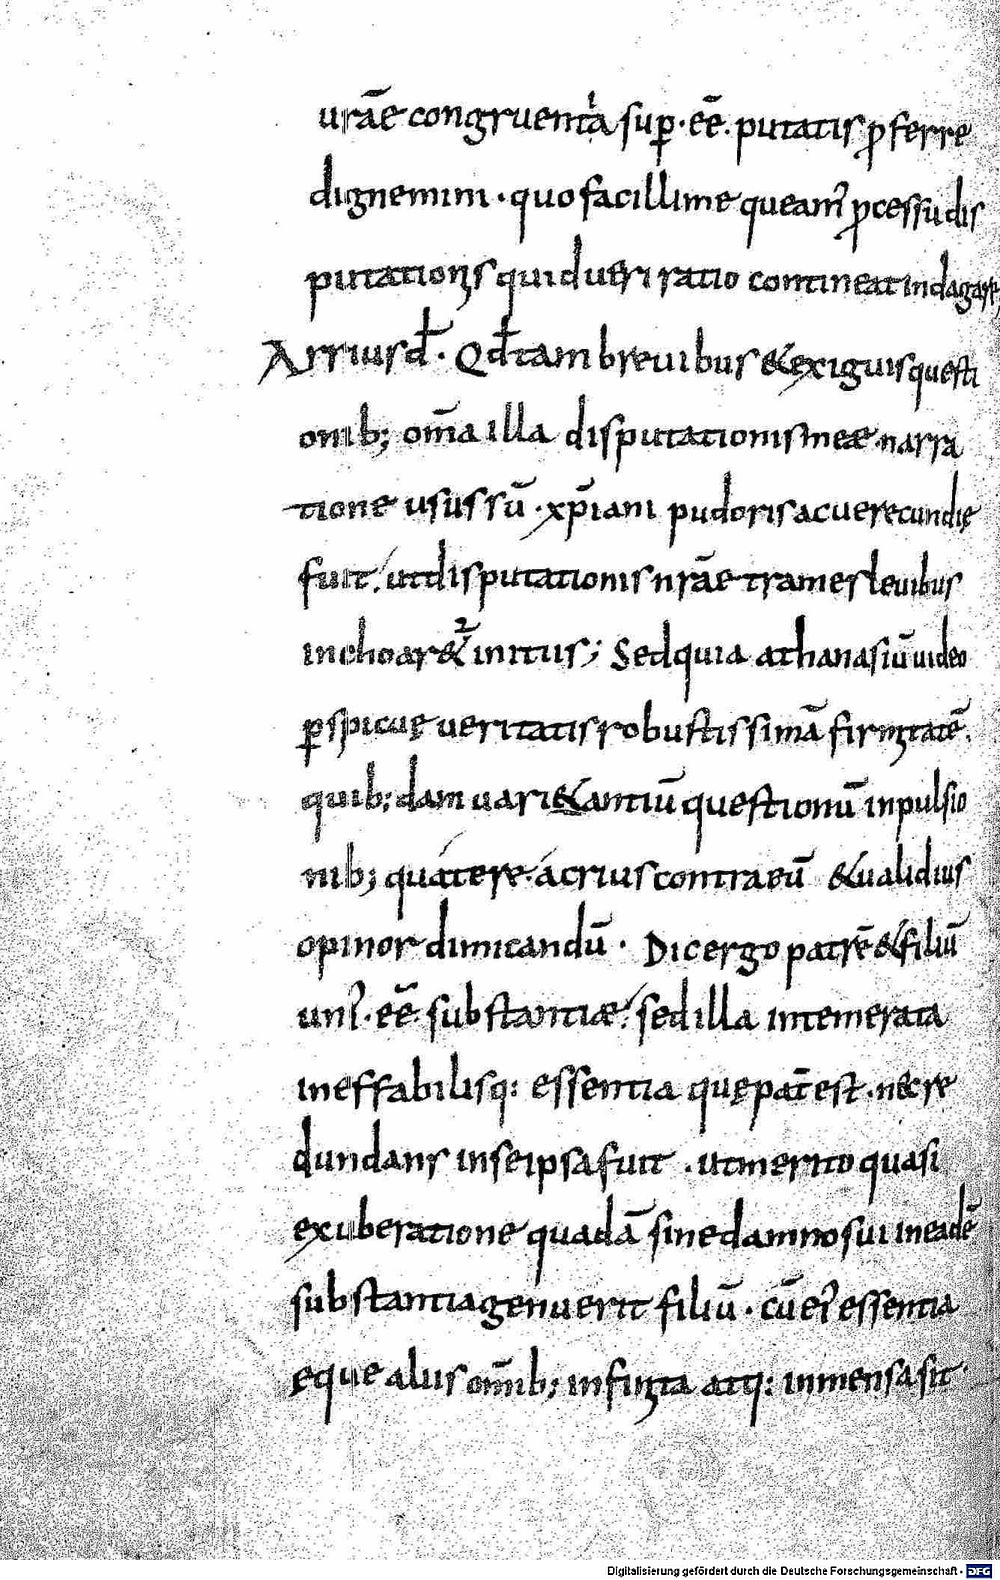 urāe congruentia sup·eē· putatis ꝓferre
dignemini · quo facillime queam' ꝓcessu dis
putationis quid ueri ratio contineat indagari;
Arrius d̄· Qđ tam breuibus & exiguis questi
onib; om̄a illa disputationis meae narra
tione usus sū · xp̄iani pudoris ac uerecundię
fuit· ut disputationis nrāe trames leuibus
inchoar& initus; Sed quia athanasiū uideo
ꝑspicuę ueritatis robustissimā firmitatē·
quib;dam uari&antiū questionū inpulsio
nib; quatere· acrius contra eū & ualidius
opinor dimicandū · Dic ergo patrē & filiū
uni'·eē· substantiae? sed illa intemerata
ineffabilisq: essentia quę pat̄ est · nec re
dundans in se ipsa fuit · ut merito quasi
exuberatione quadā sine damno sui in eadē
substantia genuerit filiū · cū ei' essentia
ęque alus om̄ib; infinita atq: inmensa sit
Digitalisierung gefördert durch die Deutsche Forschungsgemeinschaft - DFG